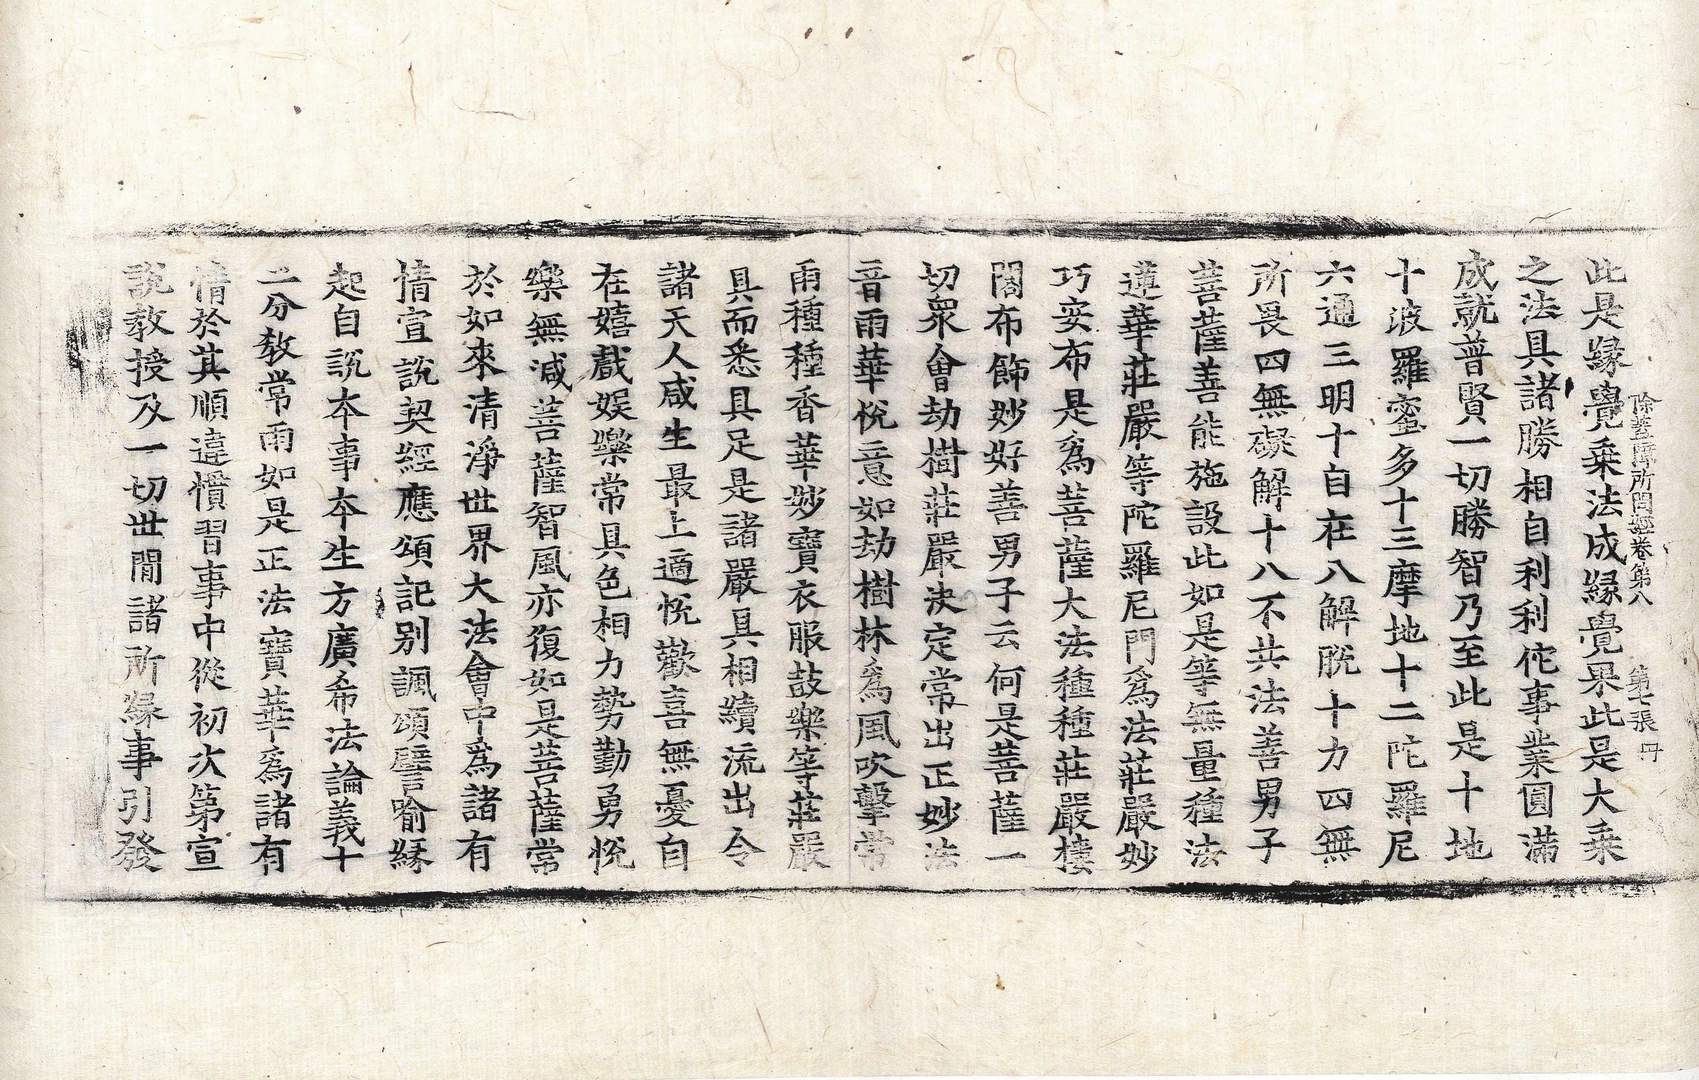 除蓋障所問經卷第八　第七張　冄
此是緣覺乘法成緣覺果此是大乘
之法具諸勝相自利利佗事業圓滿
成就普賢一切勝智乃至此是十地
十波羅蜜多十三摩地十二陀羅尼
六通三明十自在八解脫十力四無
所畏四無礙解十八不共法善男子
菩薩善能施設此如是等無量種法
蓮華莊嚴等陀羅尼門爲法莊嚴妙
巧安布是爲菩薩大法種種莊嚴樓
閣布飾妙好善男子云何是菩薩一
切衆會劫樹莊嚴決定常出正妙法
音雨華悅意如劫樹林爲風吹擊常
雨種種香華妙寶衣服鼓樂等莊嚴
具而悉具足是諸嚴具相續流出令
諸天人咸生最上適悅歡喜無憂自
在嬉戲娛樂常具色相力勢勤勇悅
樂無減菩薩智風亦復如是菩薩常
於如來清淨世界大法會中爲諸有
情宣說契經應頌記別諷頌譬喻緣
起自說本事本生方廣希法論義十
二分敎常雨如是正法寶華爲諸有
情於其順違慣習事中從初次第宣
說教授及一切世間諸所緣事引發